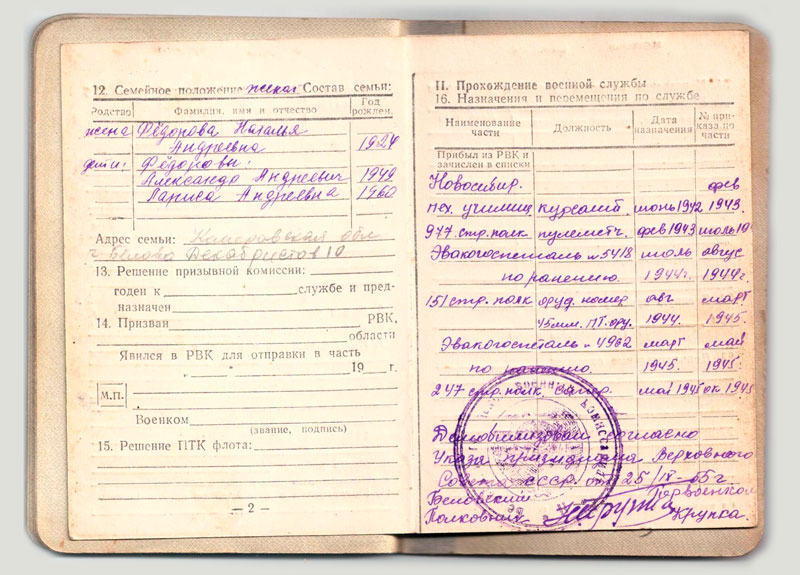 12. Семейное положение женат Состав семьи:
Родство Фамилия, имя и отчество Год рожден.
жена Фёдорова Наталья
Андреевна 1924
дети: Фёдоровы:
Александр Андреевич 1949
Лариса Андреевна 1960
Адрес семьи: Кемеровская обл
г Белово Декабристов 10
13. Решение призывной комиссии:
годен к службе и пред-
назначен
14. Призван РВК,
области
Явился в РВК для отправки в часть
19 г.
М.П.
Военком
(звание, подпись)
15. Решение ПТК флота:
— 2 —
II. Прохождение военной службы
16. Назначения и перемещения по службе
Наименование части Должность Дата назначения № приказа по части
Прибыл из РВК и
зачислен в списки
Новосибир. фев
пех. училищ курсант июнь 1942 1943.
977 стр. полк пулеметч. фев 1943 июль 19
Эвакогоспиталь №5418 июль август
по ранению. 1944г. 1944г.
151 стр. полк оруд. номер авг март
45мм. ПТ. ору. 1944. 1945.
Эвакогоспиталь № 4962 март май
по ранению. 1945. 1945.
247 стр. полк май 1945 ок 1945
Демобилизован согласно
Указа президиума Верховного
Совета СССР. от 25/IX-45г.
Беловский Горвоенком
Полковник Крупка.